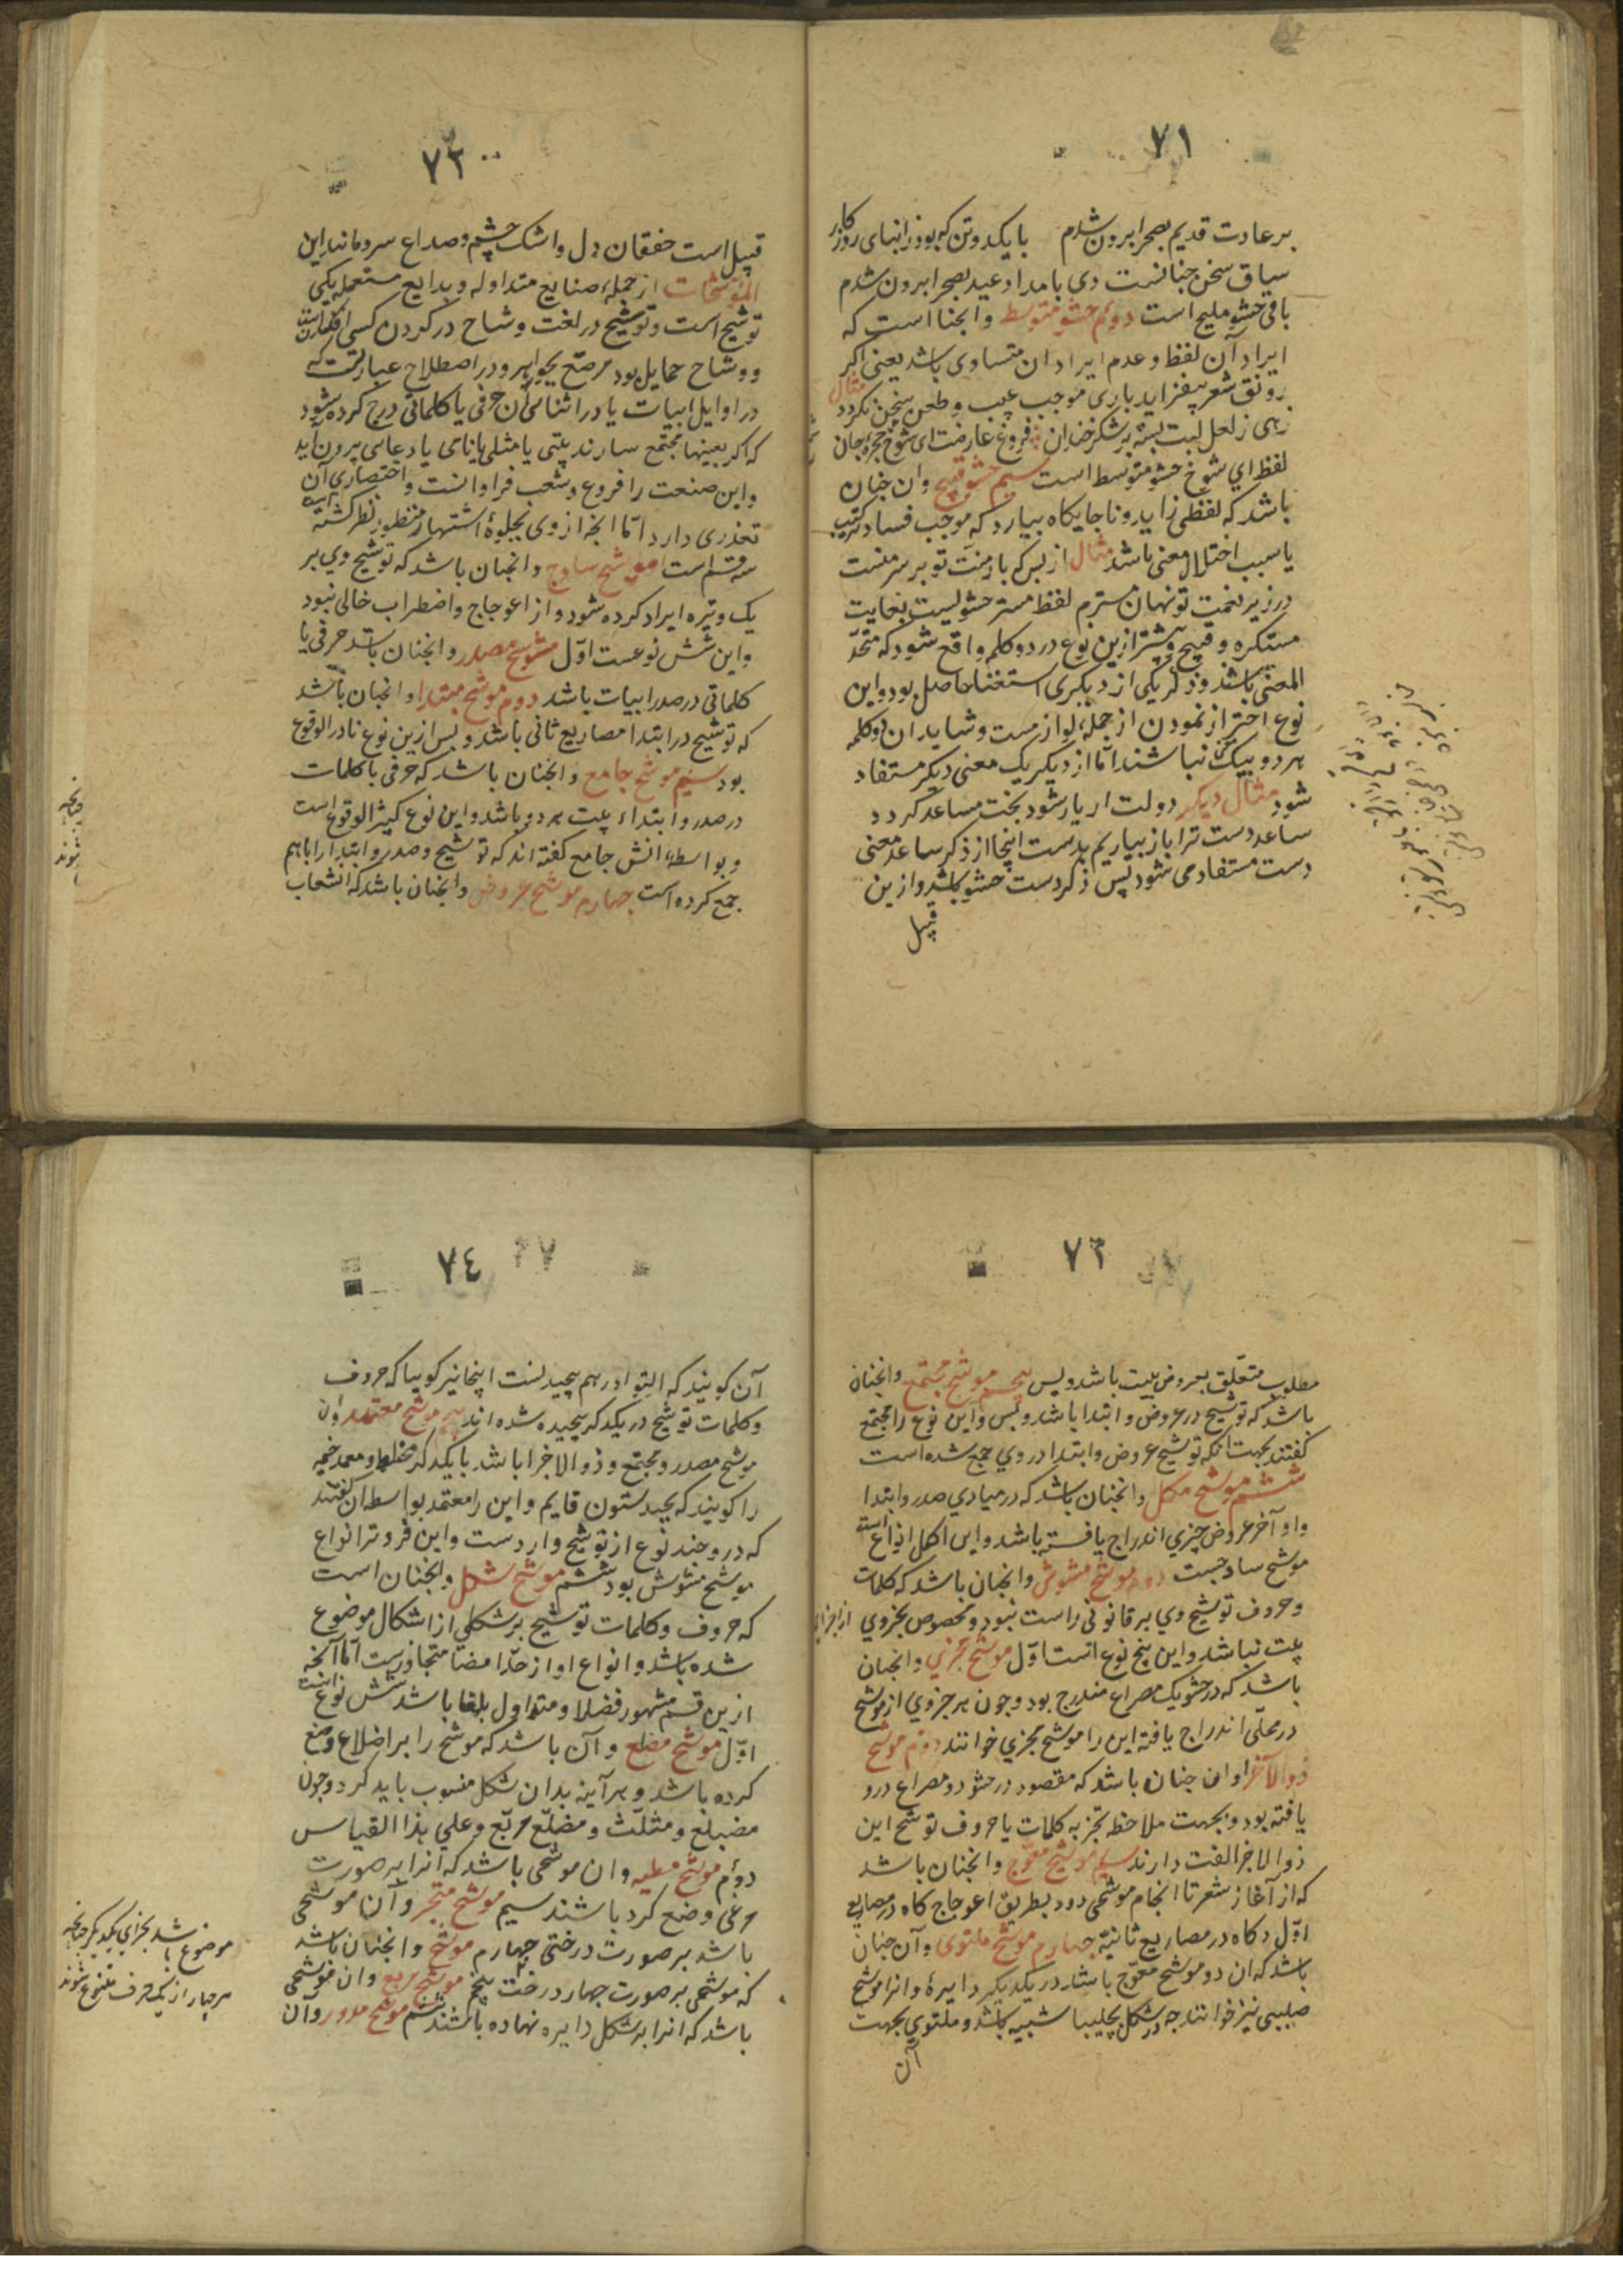 ٧١
بر عادت قدیم بصحرا برون شدم با یکدو تن که بود ز ابنای روزکار
سیاق سخن چنانست دی بامداد عید بصحرا برون شدم
باقی حشو ملیح است دوّم حشو متوسط وانچنا است که
ایراد آن لفظ و عدم ایراد ان متساوی باشد یعنی اکر
رونق شعر نیفزاید باری موجب عیب و طعن سخن نکردد مثال
زهی ز لعل لبت بسته بر شکر خندان فروغ عارضت ای شوخ حجره جان
لفظ اي شوخ حشو متوسط است سیم حشو قبیح وان چنان
باشد که لفظی زاید و ناجایکاه بیارد که موجب فساد ترکیب
یا سبب اختلال معنی باشد مثال از بس که بار منّت تو بر سر منست
در زیر نعمت تو نهان مسترم لفظ مستر حشویست بغایت
مستکره و قبیح و بیشتر ازین نوع در دو کلمه واقع شود که متحد
المعنی باشد و ذکر یکی از دیکری استغنا حاصل بود و این
نوع احتراز نمودن از جملهٔ لوازمست و شاید ان دو کلمه
هر دو بیک نباشند اما از دیکر یک معنی دیکر مستفاد
شود مثال دیکر دولت ار یار شود بخت مساعد کردد
ساعد دست ترا باز بیاریم بدست اینجا از ذکر ساعد معنی
دست مستفاد می شود پس ذکر دست حشو باشد و ازین
قبیل
٧٢
قبیل است خفقان دل و اشک چشم و صداع سر و مانند این
الموشحات از جملهٔ صنایع متداوله و بدایع مستعمله یکی
توشیح است و توشیح در لغت وشاح در کردن کسی افکندن است
و وشاح حمایل بود مرصّع بجواهر و در اصطلاح عبارتست که
در اوایل ابیات یا در اثنا می آن حرفی یا کلماتی درج کرده شود
که اکر بعینها مجتمع سازند بیتی یا مثلی یا نامی یا دعایی بیرون اید
و این صنعت را فروع و شعب فراوانست و اختصار ی آن
تعذری دارد امّا انچه از وی بجلوهٔ اشتهار منظور نظر کشته است
سه قسم است ا موشح ساذج وانچنان باشد که توشیح وی بر
یک وتیره ایراد کرده شود و از اعوجاج و اضطراب خالی نبود
و این شش نوعست اوّل موشح مصدر وانچنان باشد حرفی یا
کلماتی در صدر ابیات باشد دوم موشح مبتدا وانچنان باشد
که توشیح در ابتدا مصاریع ثانی باشد و بس ازین نوع نادر الوقوع
بود سیم موشح جامع وانچنان باشد که حرفی یا کلمات
در صدر و ابتداء بیت هر دو باشد و این نوع کثیر الوقوع است
و بواسطهٔ انش جامع کفته اند که توشیح و صدر و ابتدا را باهم
جمع کرده است چهارم موشح عروض وانچنان باشد که انشعاب
٧٣
مطلوب متعلّق بعروض بیت باشد و بس پنجم موشح مجتمع وانچنان
باشد که توشیح در عروض و ابتدا باشد و بس و این نوع را مجتمع
کفتند بجهت انکه توشیح عروض و ابتدا در وي جمع شده است
ششم موشح مکمل وانچنان باشد که در مبادي صدر و ابتدا
واو آخر عروض چیزي اندراج یافته باشد و این اکمل انواع است
موشح ساذجست دوم موشح مشوش وانچنان باشد که کلمات
و حروف توشیح وي بر قانونی راست نبود و مخصوص بجزوي از اجزای
بیت نباشد و این پنج نوع است اوّل موشح مجزي وانچنان
باشد که در حشو یک مصراع مندرج بود و چون هر جزوي از موشح
در محلّی اندراج یافته این را موشح مجزي خوانند دوّم موشح
ذو الآخر او ان چنان باشد که مقصود در حشو دو مصراع درو
یافته بود و بجهت ملاحظه تجزیه کلمات یا حروف توشح این
ذو الاجزا لفت دارند سیم موشح معوّج وانچنان باشد
که از آغاز شعر تا انجام موشحی رود بطریق اعوجاج کاه در مصاریع
اوّل و کاه در مصاریع ثانیه چهارم موشح ملتوی و آن چنان
باشد که ان دو موشح معوّج باشد در یکدیکر دایرهٔ وانرا موشح
صلیبی نیز خوانند چه در شکل بچلیبا شبیه باشد و ملتوي بجهت
آن
٧٤
آن کویند که التوا در هم پیچیدنست اینجا نیز کوییا که حروف
و کلمات توشیح در یکدکر پیچیده شده اند پنجم موشح معتمد و ان
موشح مصدر و مجتمع و ذو الاجزا باشد با یکدکر مختلط و معمد خیمه
را کویند که بچند ستون قایم و این را معتمد بواسطه ان کفتند
که درو چند نوع از توشیح واردست و این فروتر انواع
موشح مشوش بود ششم موشح شکل وانچنان است
که حروف و کلمات توشیح بر شکلي از اشکال موضوع
شده باشد و انواع او از حدّ امضا متجاوزست امّا آنچه
ازین قسم مشهور فضلا و متداول بلغا باشد شش نوع است
اوّل موشح مضلع و آن باشد که موشح را بر اضلاع وضع
کرده باشد و هر آینه بدان شکل منسوب باید کرد و چون
مضلع و مثلّث و مضلّع مربّع و علي هذا القیاس
دوّم موشح مطیر و ان موشحی باشد که انرا بر صورت
مرغی وضع کرد باشند سیم موشح متجر و آن موشحی
باشد بر صورت درختی چهارم موشح وانچنان باشد
که موشحی بر صورت چهار درخت پنجم موشح مربع و ان موشحی
باشد که انرا بر شکل دایره نهاده باشند ششم موشح مدور و آن
موضوع باشد بجزاي یکدیکر چنانچه
هر چهار از یک حرف متنوع شوند